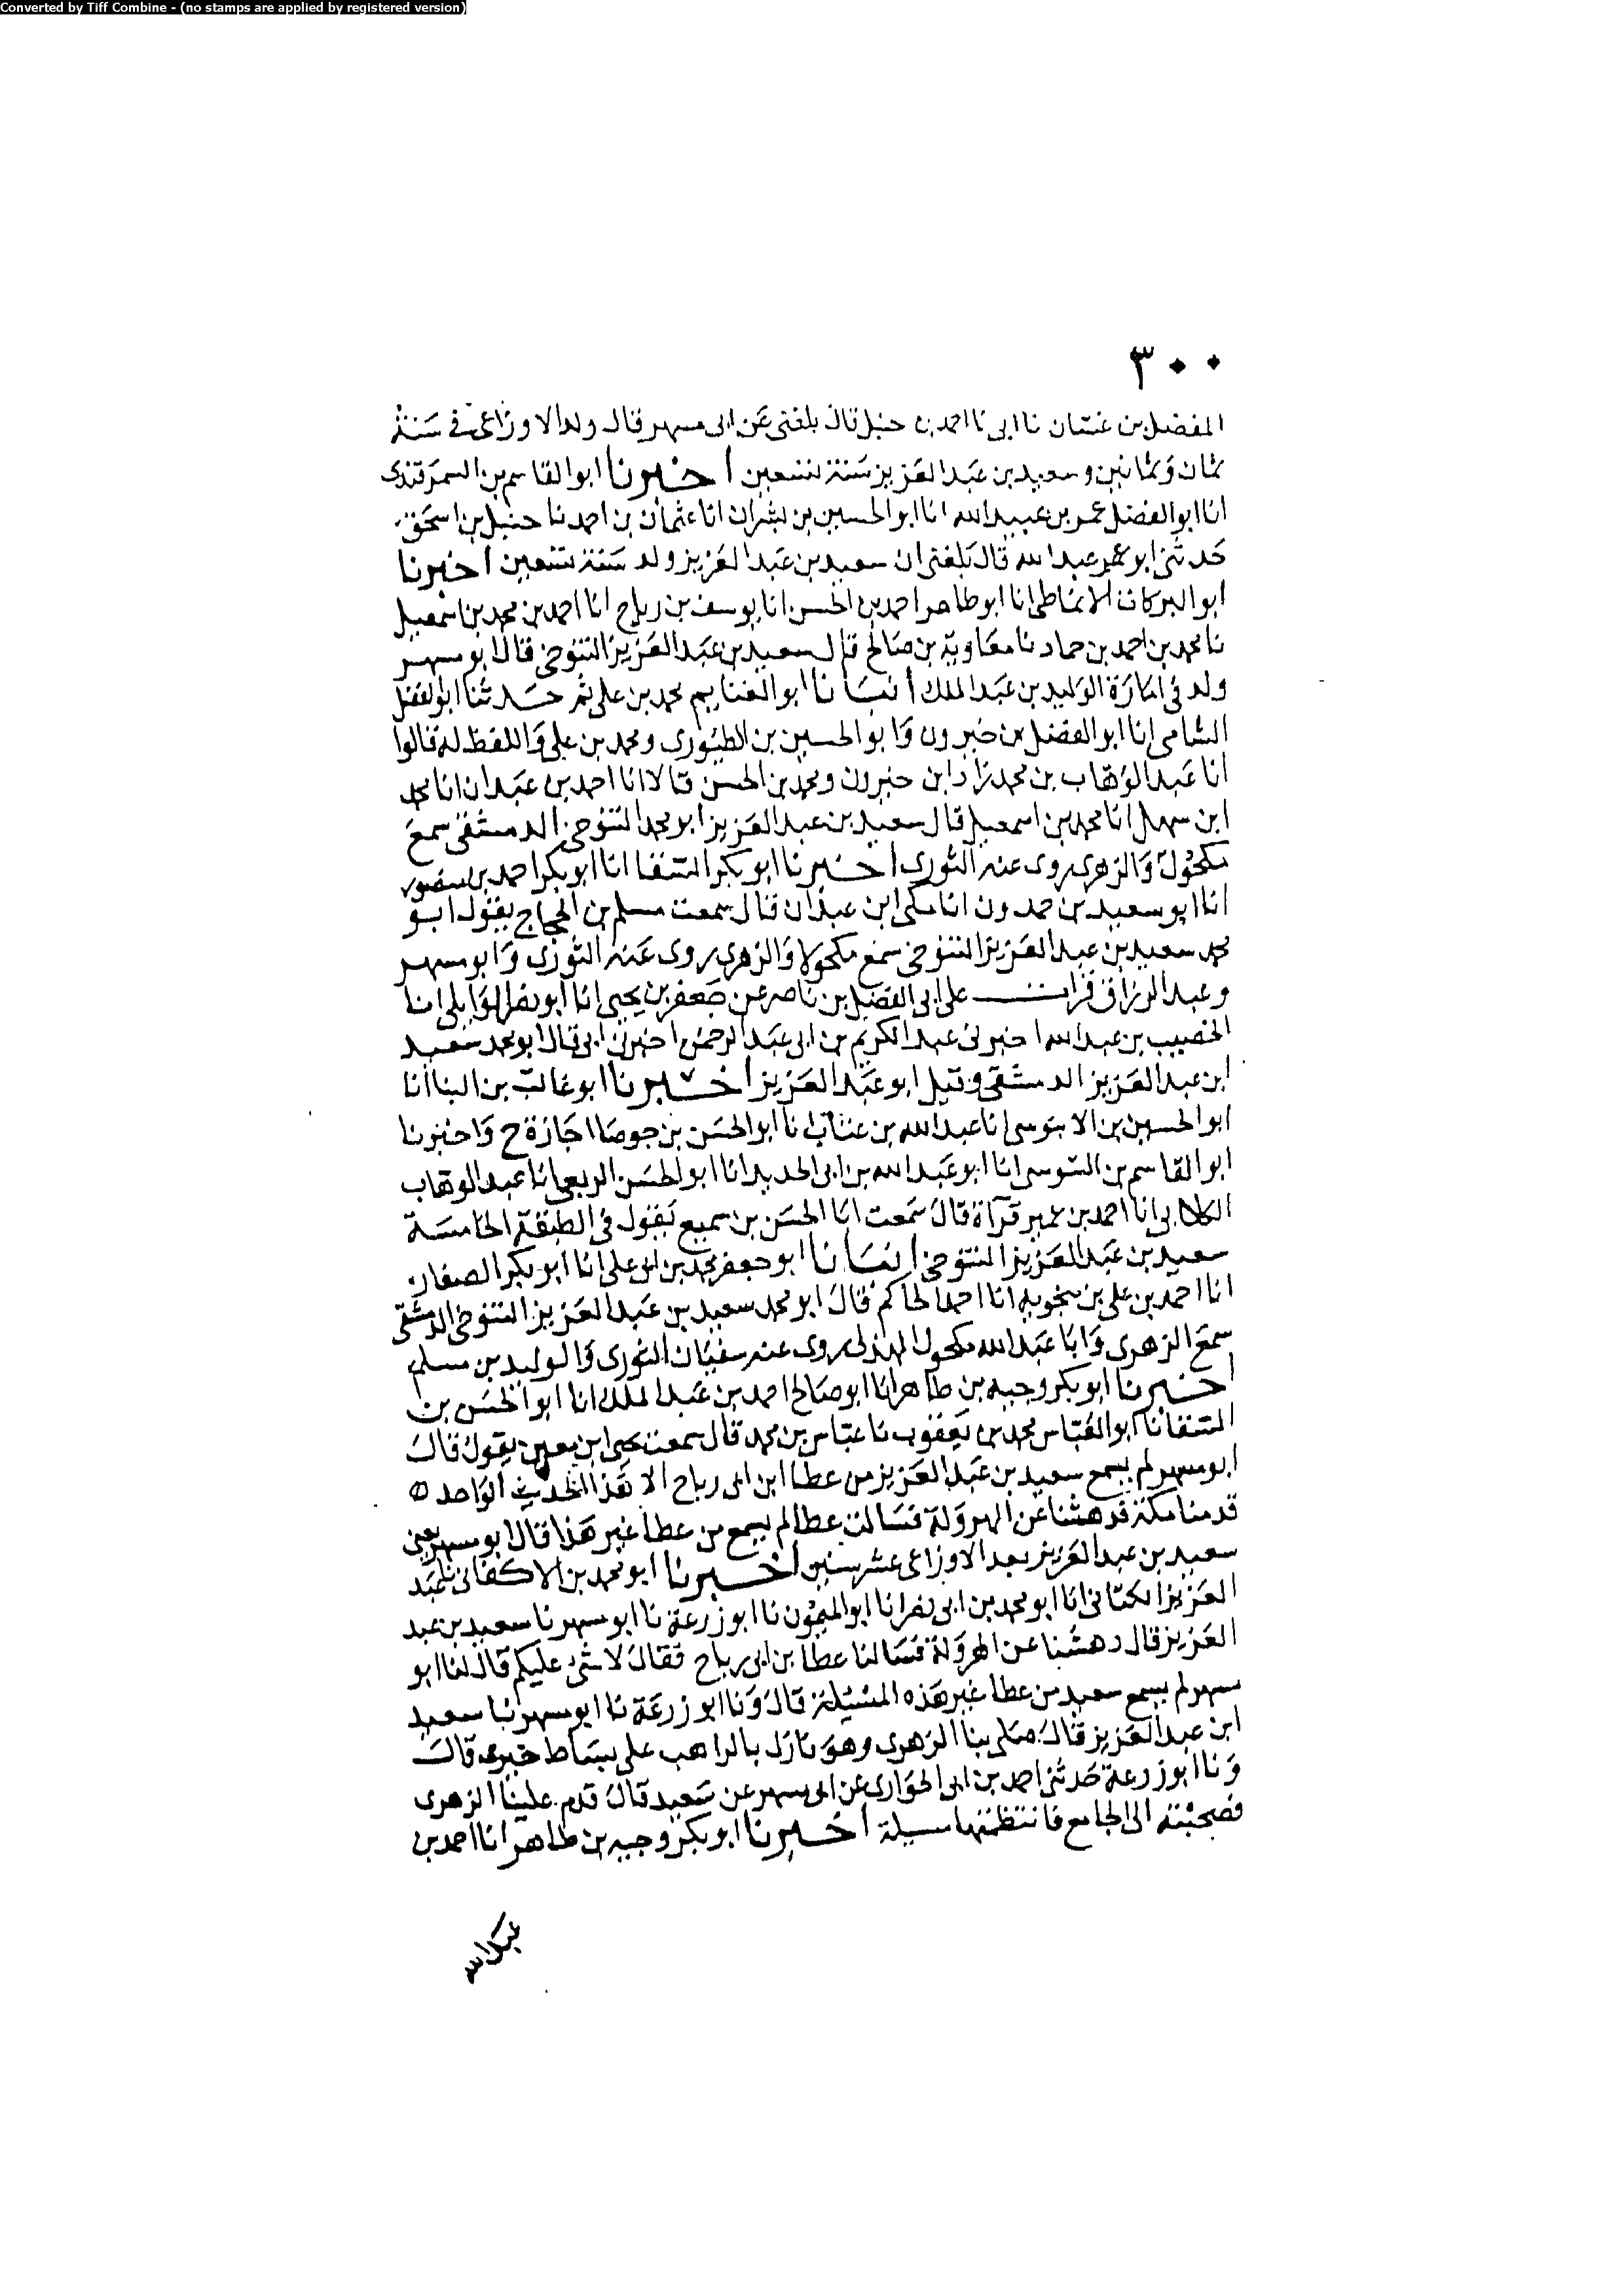 Converted by Tiff Combine - (no stamps are applied by registered version)
٣٠٠
المفضل بن غسان نا ابى نا احمد بن حنبل قال بلغنى عن ابى مسهر قال ولد الاوزاعى فى سنة
ثمان وثمانين وسعيد بن عبد العزيز سنة تسعين اخبرنا ابو القاسم بن السمرقندى
انا ابو الفضل عمر بن عبيد الله انا ابو الحسين بن بشران انا عثمان بن احمد نا حنبل بن اسحق
حدثنى ابو عمر عبد الله قال بلغنى ان سعيد بن عبد العزيز ولد سنة تسعين اخبرنا
ابو البركات الانماطى انا ابو طاهر احمد بن الحسن انا يوسف بن رباح انا احمد بن محمد بن اسمعيل
نا محمد بن احمد بن حماد نا معاوية بن صالح قال سعيد بن عبد العزيز التنوخى قال ابو مسهر
ولد فى امارة الوليد بن عبد الملك أنبأنا ابو الغنايم محمد بن على ثم حدثنا ابو الفضل
السامى انا ابو الفضل بن خيرون وابو الحسين بن الطيورى ومحمد بن على واللفظ له قالوا
انا عبد الوهاب بن محمد زاد ابن خيرون ومحمد بن الحسن قالا انا احمد بن عبدان انا محمد
ابن سهل انا محمد بن اسمعيل قال سعيد بن عبد العزيز ابو محمد التنوخى الدمشقى سمع
مكحول والزهرى روى عنه الثورى اخبرنا ابو بكر الشقا انا ابو بكر احمد بن منصور
انا ابو سعيد بن حمدون انا مكى ابن عبدان قال سمعت مسلم بن الحجاج يقول ابو
محمد سعيد بن عبد العزيز التنوخى سمع مكحولا والزهرى روى عنه الثورى وابو مسهر
وعبد الرزاق قرات على ابى الفضل بن ناصر عن جعفر بن يحيى انا ابو نصر الوايلى انا
الخصيب بن عبد الله اخبرنى عبد الكريم بن ابى عبد الرحمن اخبرنى ابى قال ابو محمد سعيد
ابن عبد العزيز الدمشقى وقيل ابو عبد العزيز اخبرنا ابو غالب بن البنا انا
ابو الحسين بن الابنوسى انا عبد الله بن عتاب انا ابو الحسن بن جوصا اجازة ح واخبرنا
ابو القاسم بن السوسى انا ابو عبد الله بن ابى الحديد انا ابو الحسن الربعى انا عبد الوهاب
الكلابى انا احمد بن عمير قرآة قال سمعت ابا الحسن بن سميع يقول فى الطبقة الخامسة
سعيد بن عبد العزيز التنوخى انبأنا ابو جعفر محمد بن ابى على انا ابو بكر الصفار
انا احمد بن على بن منجويه انا احمد الحاكم قال ابو محمد سعيد بن عبد العزيز التنوخى الدمشقى
سمع الزهرى وابا عبد الله مكحول الهذلى روى عنه سفيان الثورى والوليد بن مسلم
اخبرنا ابو بكر وجيه بن طاهر انا ابو صالح احمد بن عبد الملك انا ابو الحسن بن
السقا نا ابو العباس محمد بن يعقوب نا عباس بن محمد قال سمعت يحيى ابن معين يقول قال
ابو مسهر لم يسمع سعيد بن عبد العزيز من عطا ابن ابى رباح الا هذا الحديث الواحد ٥
قدمنا مكة فدهشنا عن الهرولة فسالت عطا لم يسمع من عطا غير هذا قال ابو مسهر بقى
سعيد بن عبد العزيز بعد الاوزاعى عشر سنين اخبرنا ابو محمد بن الاكفانى نا عبد
العزيز الكتانى انا ابو محمد بن ابى نصر انا ابو الميمون نا ابو زرعة نا ابو مسهر نا سعيد بن عبد
العزيز قال دهشنا عن الهرولة فسالنا عطا بن ابى رباح فقال لا شئ عليكم قال لنا ابو
مسهر لم يسمع سعيد من عطا غير هذه المسئلة قال ونا ابو زرعة نا ابو مسهر نا سعيد
ابن عبد العزيز قال صلى بنا الزهرى وهو نازل بالراهب على بساط خبرى قال
ونا ابو زرعة حدثنى احمد بن ابى الحوارى عن ابى مسهر عن سعيد قال قدم علينا الزهرى
فصحبته الى الجامع فانتظمتها مسيلة اخبرنا ابو بكر وجيه بن طاهر انا احمد بن